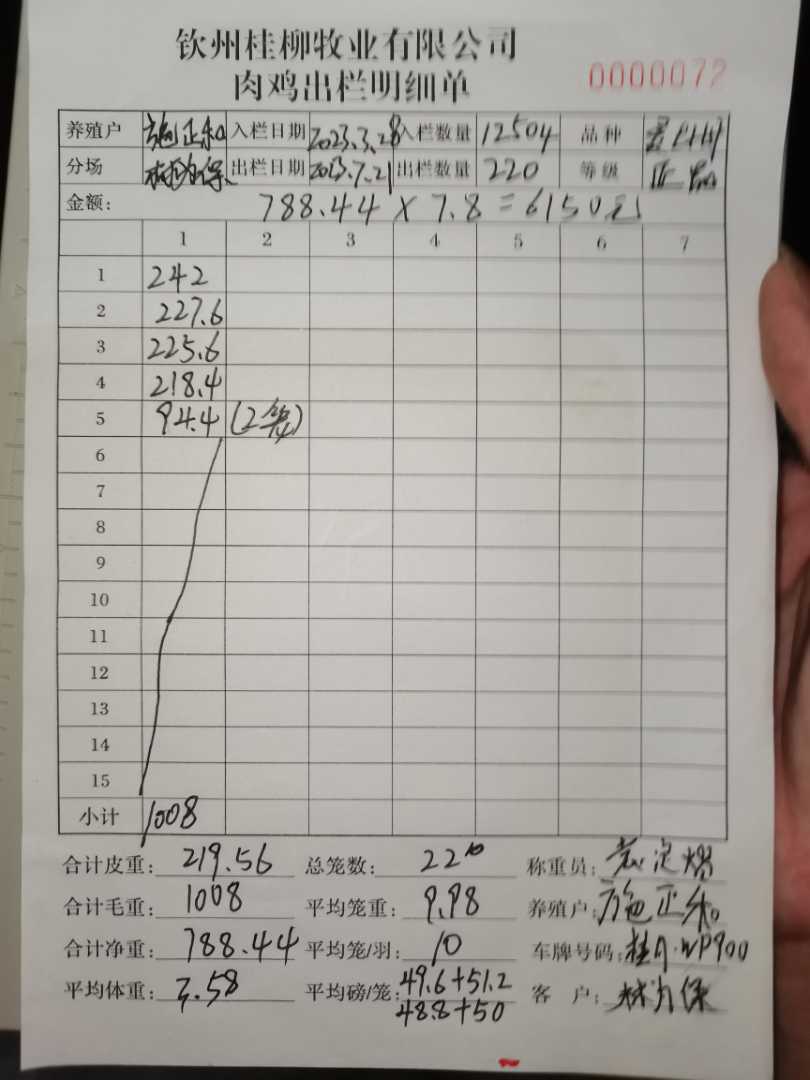 钦州桂柳牧业有限公司
肉鸡出栏明细单
0000072
养殖户 施正和 入栏日期 2023.3.28 入栏数量 12504 品种
分场 出栏日期 2023.7.21 出栏数量 220 等级 正品
金额: 788.44 × 7.8 = 6150元
1 2 3 4 5 6 7
1 242
2 227.6
3 225.6
4 218.4
5 94.4 (2笼)
6
7
8
9
10
11
12
13
14
15
小计 1008
合计皮重: 219.56 总笼数: 22 称重员:
合计毛重: 1008 平均笼重: 9.98 养殖户: 施正和
合计净重: 788.44 平均笼/羽: 10 车牌号码:
平均体重: 3.58 平均磅/笼: 49.6+51.2 客 户:
48.8+50